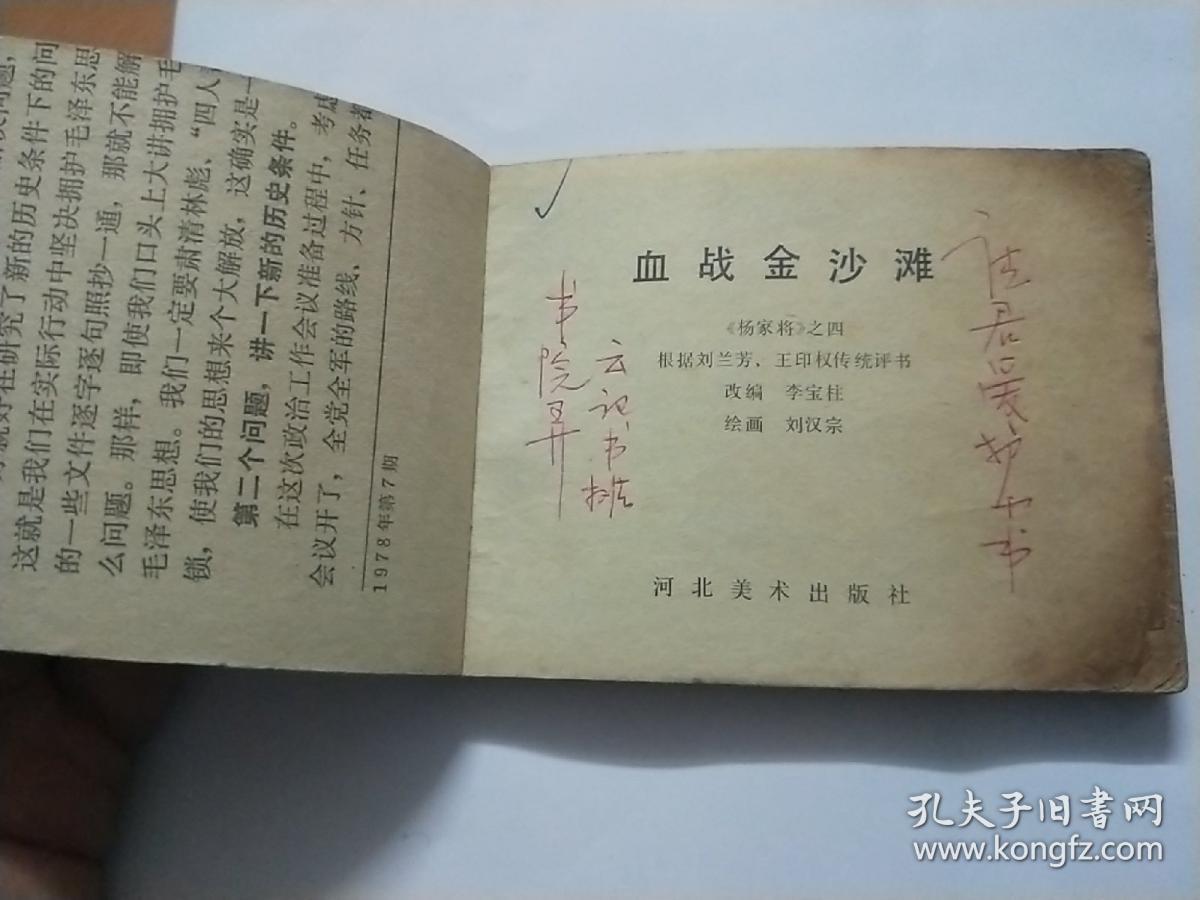 这就是我们在实际行动中坚决拥护毛泽东思
的一些文件逐字逐句照抄一通，那就不能解
么问题。那样，即使我们口头上大讲拥护毛
毛泽东思想。我们一定要肃清林彪、“四人
锁，使我们的思想来个大解放，这确实是一
第二个问题，讲一下新的历史条件。
在这次政治工作会议准备过程中，考虑
会议开了，全党全军的路线、方针、任务都
1978年第7期
血战金沙滩
《杨家将》之四
根据刘兰芳、王印权传统评书
改编 李宝柱
绘画 刘汉宗
河北美术出版社
云记书摊
书院弄
孔夫子旧书网
www.kongfz.com